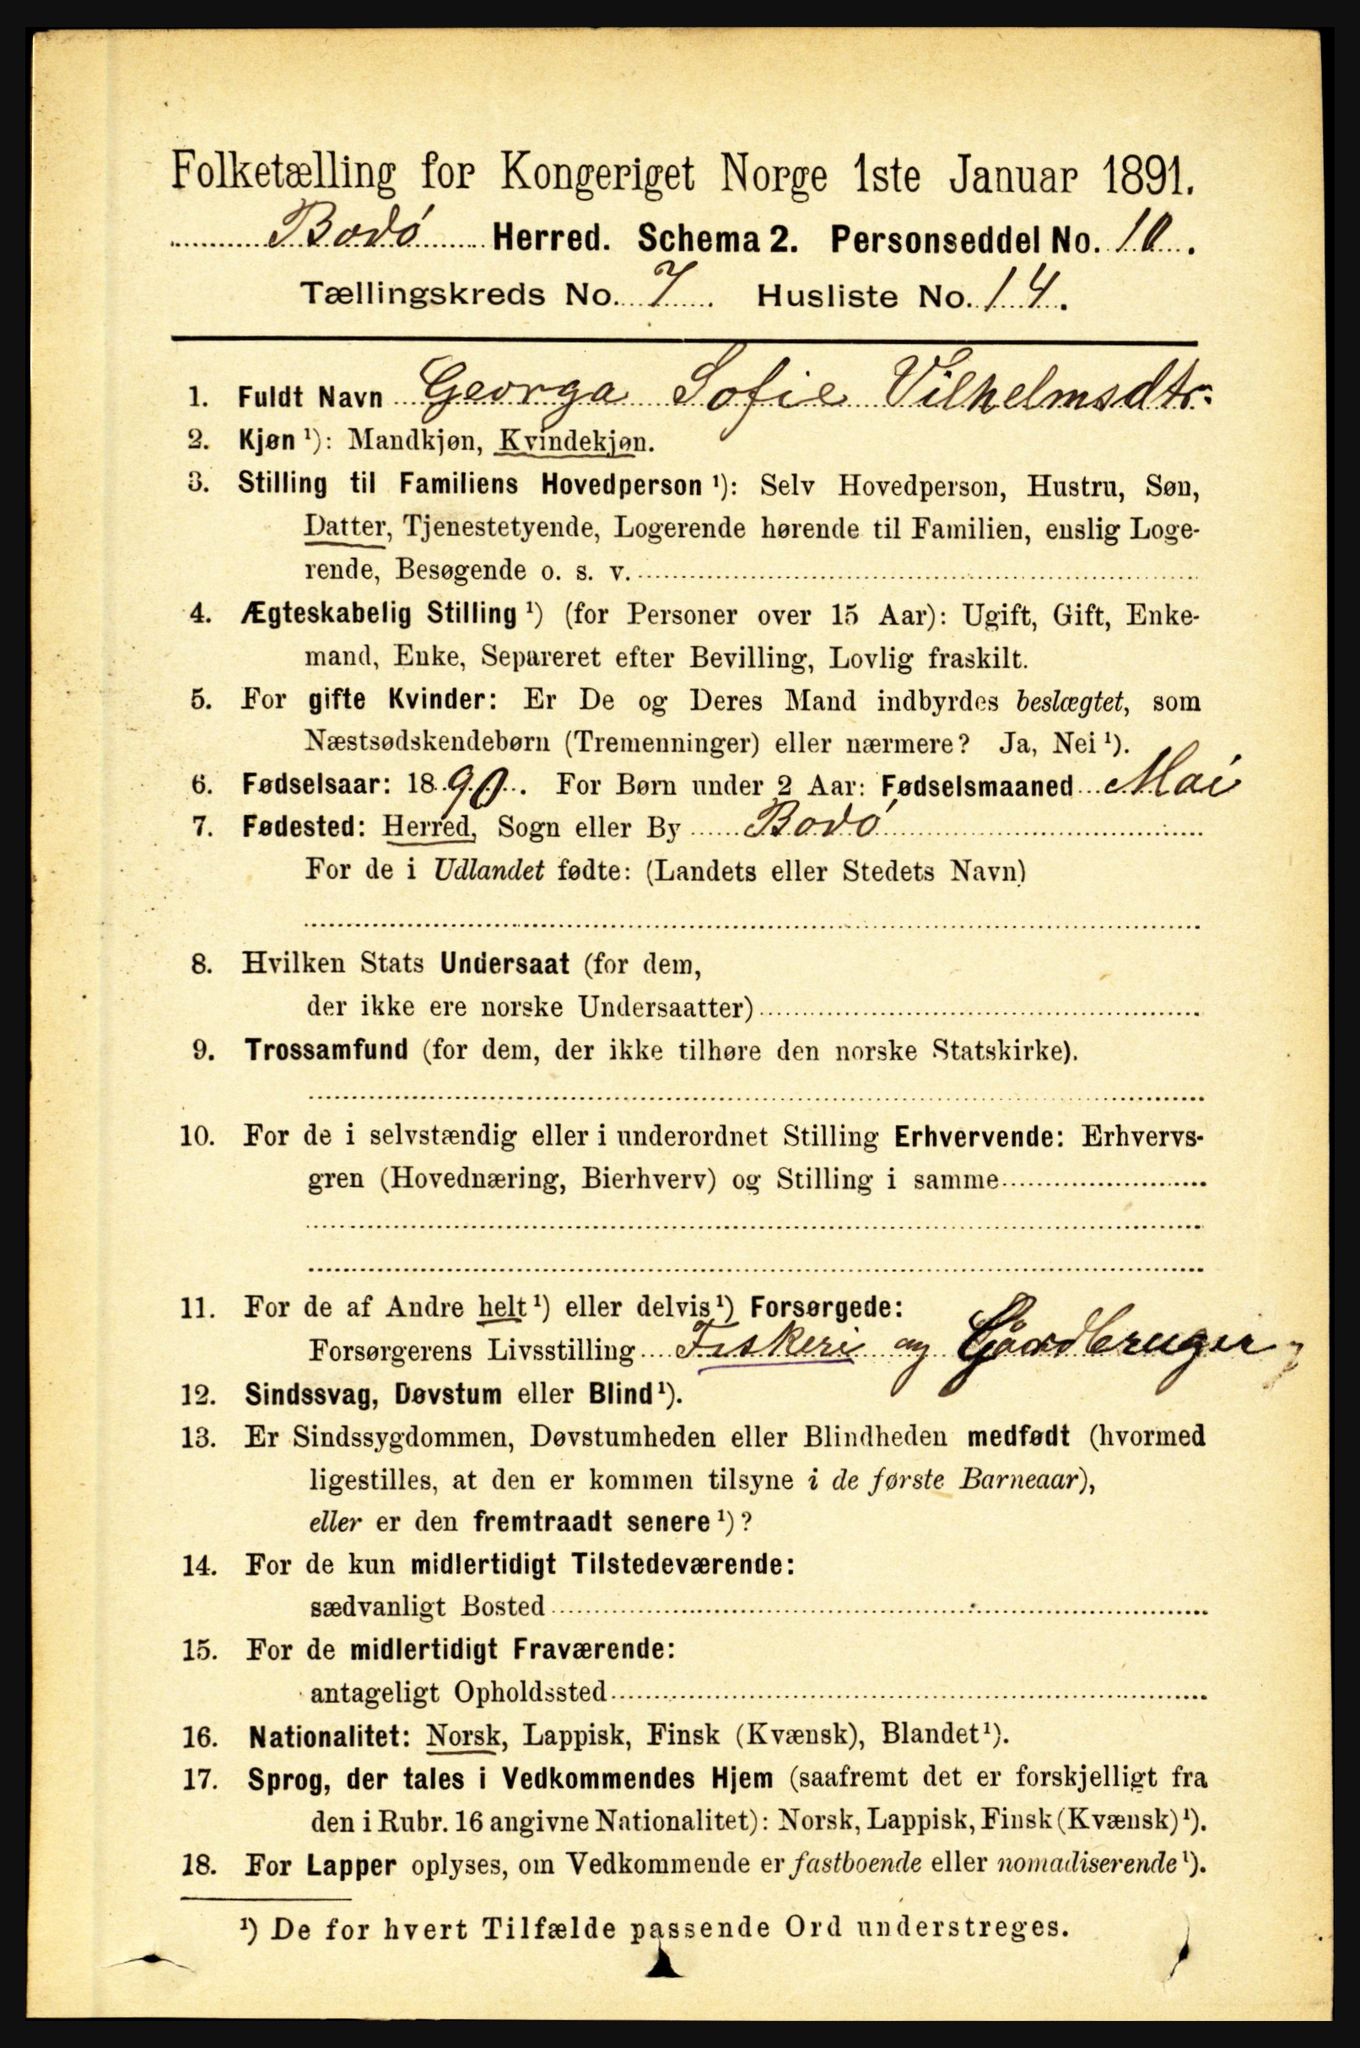 Folketælling for Kongeriget Norge 1ste Januar 1891.
Bodø Herred. Schema 2. Personseddel No. 10.
Tællingskreds No. 7. Husliste No. 14.
1. Fuldt Navn Georga Sofie Vilhelmsdtr.
2. Kjøn ¹): Mandkjøn, Kvindekjøn.
3. Stilling til Familiens Hovedperson ¹): Selv Hovedperson, Hustru, Søn,
Datter, Tjenestetyende, Logerende hørende til Familien, enslig Loge-
rende, Besøgende o. s. v.
4. Ægteskabelig Stilling ¹) (for Personer over 15 Aar): Ugift, Gift, Enke-
mand, Enke, Separeret efter Bevilling, Lovlig fraskilt.
5. For gifte Kvinder: Er De og Deres Mand indbyrdes beslægtet, som
Næstsødskendebørn (Tremenninger) eller nærmere? Ja, Nei ¹).
6. Fødselsaar: 1890. For Børn under 2 Aar: Fødselsmaaned Mai
7. Fødested: Herred, Sogn eller By Bodø
For de i Udlandet fødte: (Landets eller Stedets Navn)
8. Hvilken Stats Undersaat (for dem,
der ikke ere norske Undersaatter)
9. Trossamfund (for dem, der ikke tilhøre den norske Statskirke).
10. For de i selvstændig eller i underordnet Stilling Erhvervende: Erhvervs-
gren (Hovednæring, Bierhverv) og Stilling i samme
11. For de af Andre helt ¹) eller delvis ¹) Forsørgede:
Forsørgerens Livsstilling Fiskeri og Gaardbruger
12. Sindssvag, Døvstum eller Blind ¹).
13. Er Sindssygdommen, Døvstumheden eller Blindheden medfødt (hvormed
ligestilles, at den er kommen tilsyne i de første Barneaar),
eller er den fremtraadt senere ¹)?
14. For de kun midlertidigt Tilstedeværende:
sædvanligt Bosted
15. For de midlertidigt Fraværende:
antageligt Opholdssted
16. Nationalitet: Norsk, Lappisk, Finsk (Kvænsk), Blandet ¹).
17. Sprog, der tales i Vedkommendes Hjem (saafremt det er forskjelligt fra
den i Rubr. 16 angivne Nationalitet): Norsk, Lappisk, Finsk (Kvænsk) ¹).
18. For Lapper oplyses, om Vedkommende er fastboende eller nomadiserende ¹).
¹) De for hvert Tilfælde passende Ord understreges.